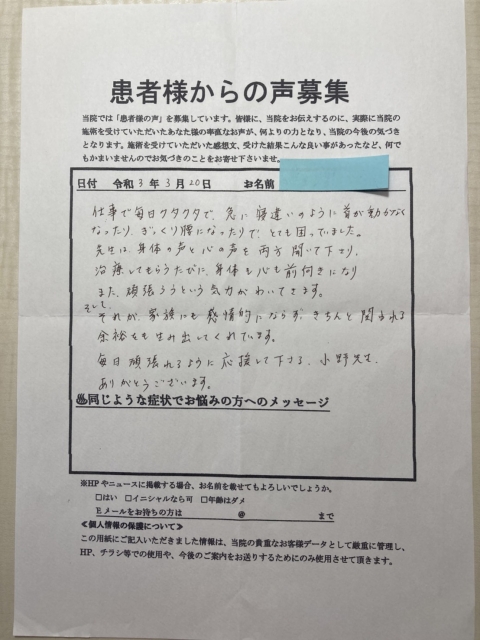 患者様からの声募集
当院では「患者様の声」を募集しています。皆様に、当院をお伝えするのに、実際に当院の
施術を受けていただいたあなた様の率直なお声が、何よりの力となり、当院の今後の気づき
となります。施術を受けていただいた感想文、受けた結果こんな良い事があったなど、何で
もかまいませんのでお気づきのことをお寄せ下さいませ。
日付 令和 3 年 3 月 20 日 お名前
仕事で毎日クタクタで、急に寝違いのように首が動かなく
なったり、ぎっくり腰になったりで、とても困っていました。
先生は、身体の声と心の声を両方聞いて下さり、
治療してもらうたびに、身体も心も前向きになり
また、頑張ろうという気力がわいてきます。
そして
それが、家族にも感情的にならず、きちんと関われる
余裕をも生み出してくれています。
毎日頑張れるように応援して下さる、小野先生、
ありがとうございます。
♨同じような症状でお悩みの方へのメッセージ
※HPやニュースに掲載する場合、お名前を載せてもよろしいでしょうか。
□はい □イニシャルなら可 □年齢はダメ
Eメールをお持ちの方は @ まで
≪個人情報の保護について≫
この用紙にご記入いただきました情報は、当院の貴重なお客様データとして厳重に管理し、
HP、チラシ等での使用や、今後のご案内をお送りするためにのみ使用させて頂きます。